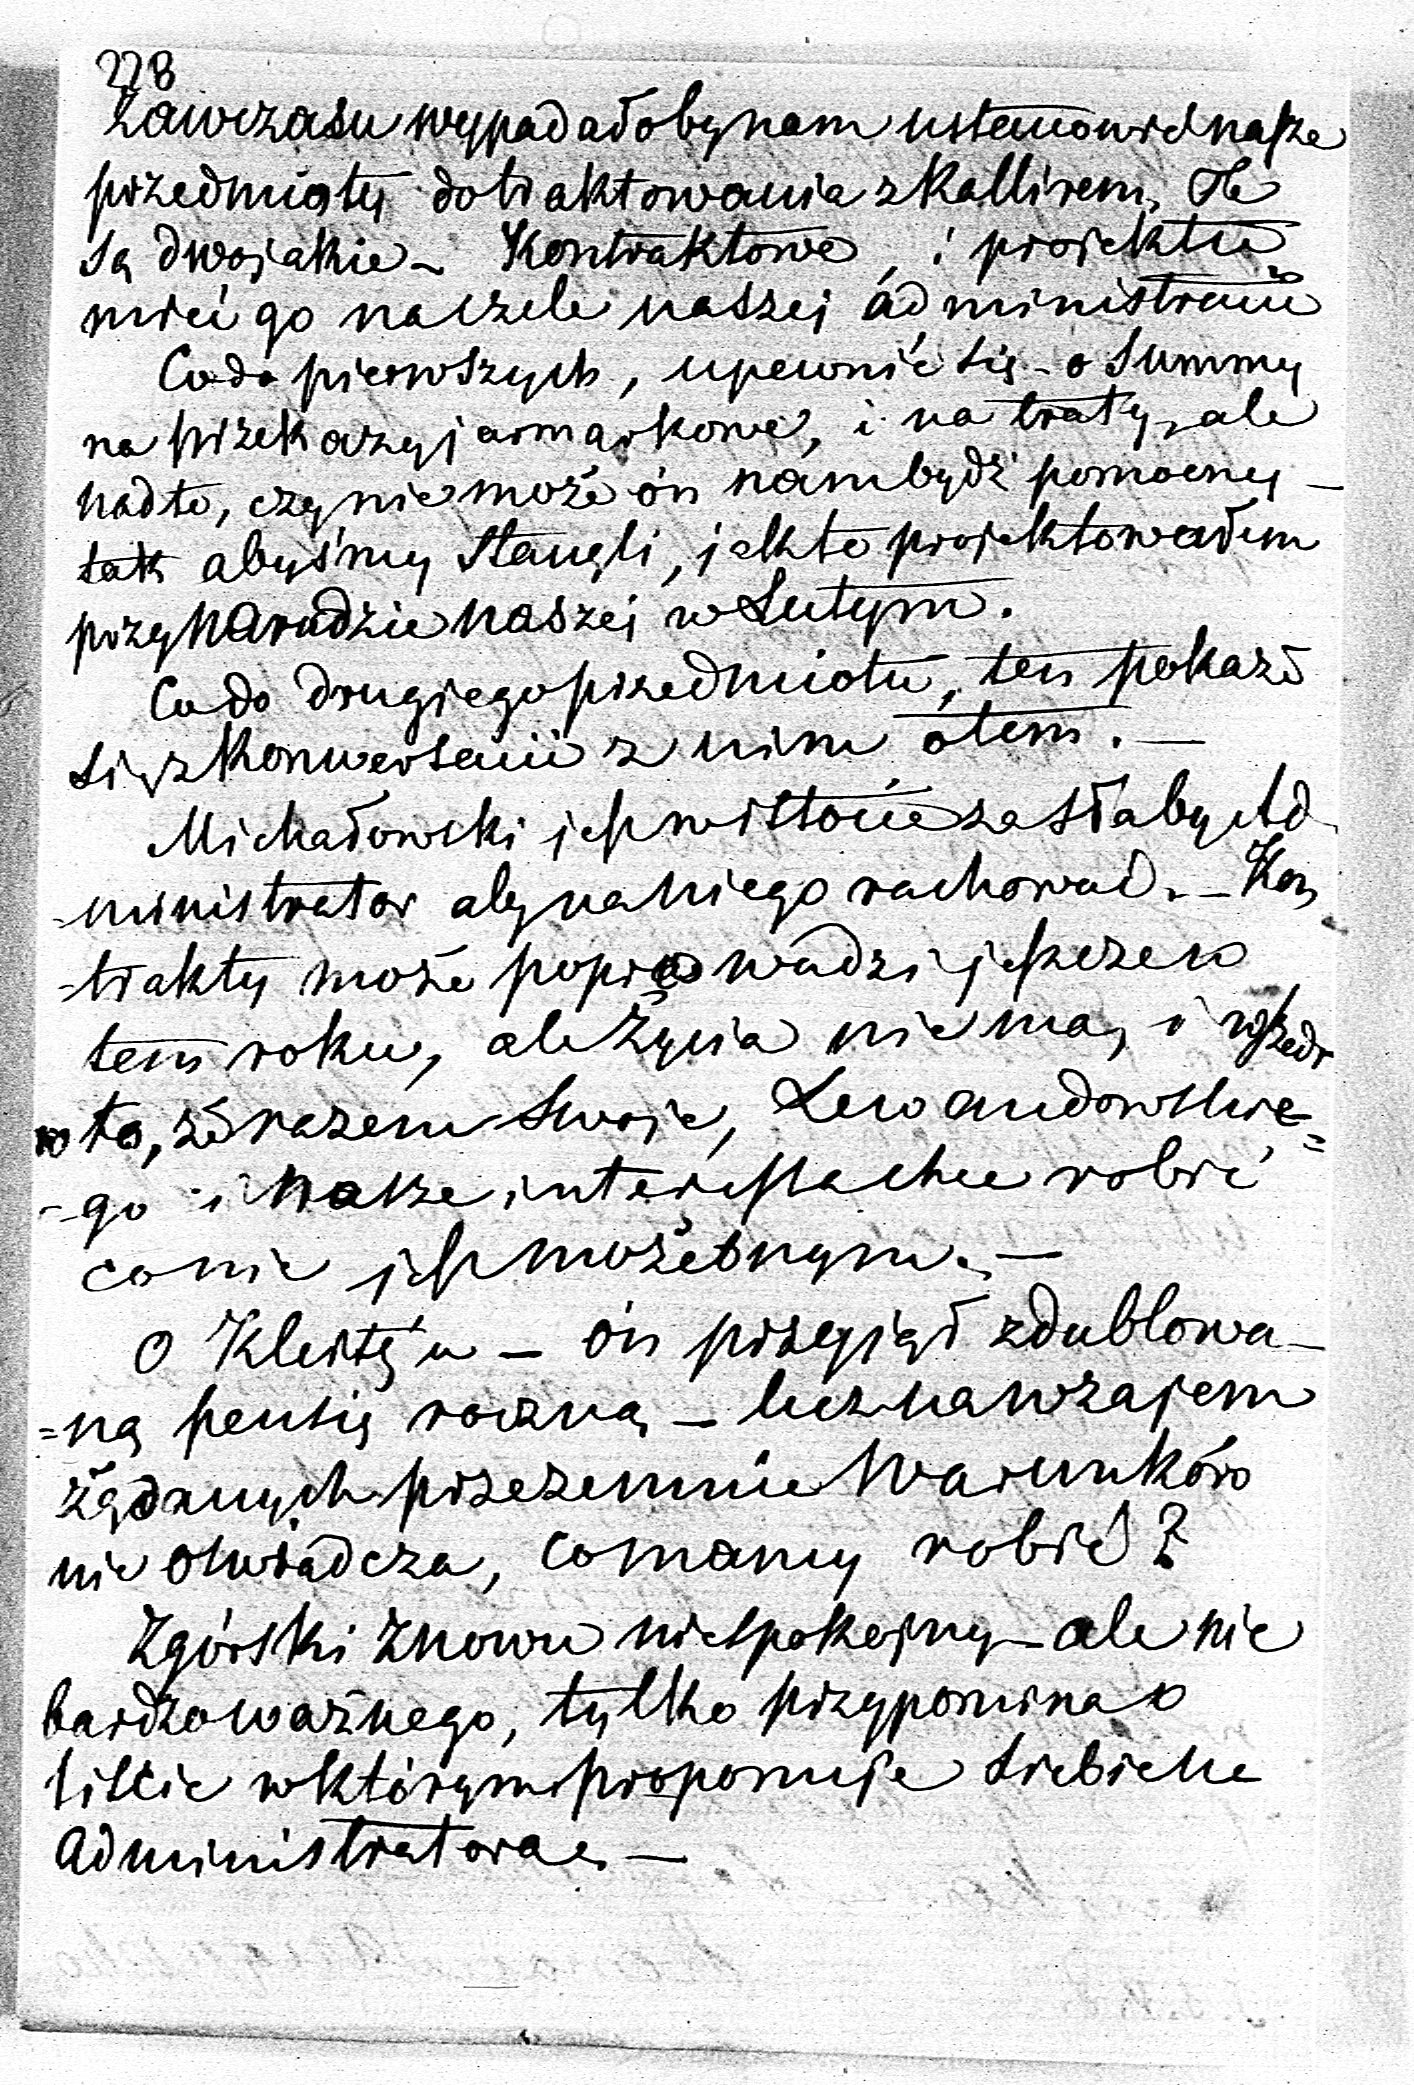 228
Zawczasu wypadałoby nam ustanowić nasze
przedmioty do traktowania z Kallirem. Te
są dwojakie – Kontraktowe, i projektu
mieć go na czele naszej administracii
Co do pierwszych, upewnić się – o summy
na przekazy jarmarkowe, i na traty, ale
nadto, czy nie może ón nam bydź pomocny –
tak abyśmy stanęli, jak to projektowałem
przy naradzie naszej w Lutym.
Co do drugiego przedmiotu, ten pokaże
się z konwersacii z nim ótem. —
Michałowski jest w istocie za słaby Ad
=ministrator aby na niego rachować. – Kon
=trakty może poprowadzi jeszcze w
tem roku, ale życia nie ma, i wszedł
w to, że razem swoje, Lewandowskie=
=go i nasze interessa chce robić
co nie jest możebnym. —
O Kleitę'u – ón przyjął zdublowa–
=ną pensię roczną – lecz nawzajem
żądanych przezemnie warunków
nie oświadcza, co mamy robić?
Zgórski znowu niespokojny – ale nic
bardzo ważnego, tylko przypomina o
liście w którym proponuje siebie na
administratora. —